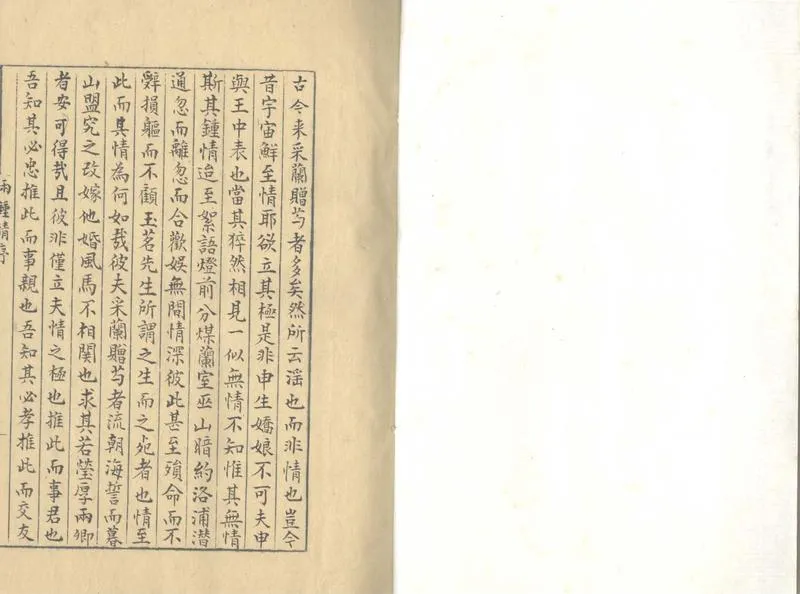 古今来采蘭贈芍者多矣然所云滛也而非情也豈今
昔宇宙鮮至情耶欲立其極是非申生嬌娘不可夫申
與王中表也當其猝然相見一似無情不知惟其無情
斯其鍾情迨至絮語燈前分煤蘭室巫山暗約洛浦潜
通忽而離忽而合歡娱無間情深彼此甚至殞命而不
辤損軀而不顧玉茗先生所謂之生而之死者也情至
此而其情為何如哉彼夫采蘭贈芍者流朝海誓而暮
山盟究之改嫁他婚風馬不相関也求其若瑩厚兩卿
者安可得哉且彼非僅立夫情之極也推此而事君也
吾知其必忠推此而事親也吾知其必孝推此而交友
兩鍾情序